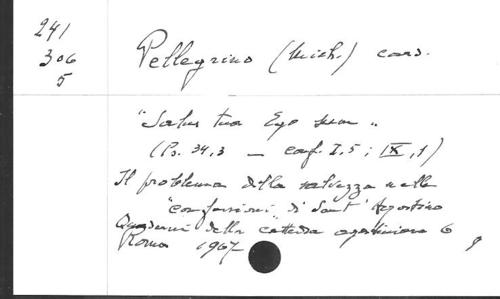 241
306
5
Pellegrino (Mich.) card.
"Salus tua Ego sum"
(Ps. 34,3 — conf. I,5; IX,1)
Il problema della salvezza nelle
"confessioni" di Sant'Agostino
Quaderni della cattedra agostiniana 6
Roma 1967